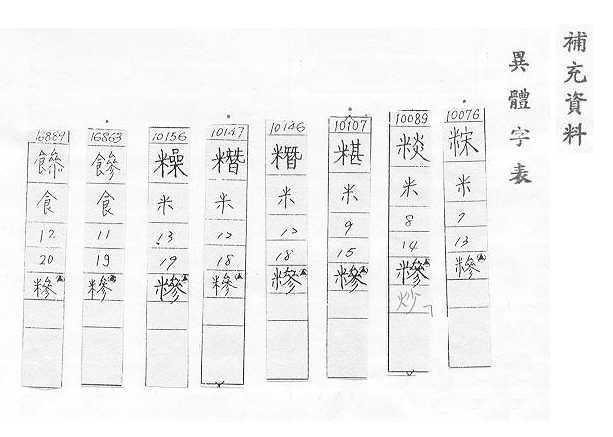 補充資料
異體字表
10076
米
7
13
糝
10089
䊏
米
8
14
糝
炒
10107
糂
米
9
15
糝
10146
米
12
18
糝
10147
米
12
18
糝
10156
米
13
19
糝
16863
食
11
19
糝
16889
食
12
20
糝